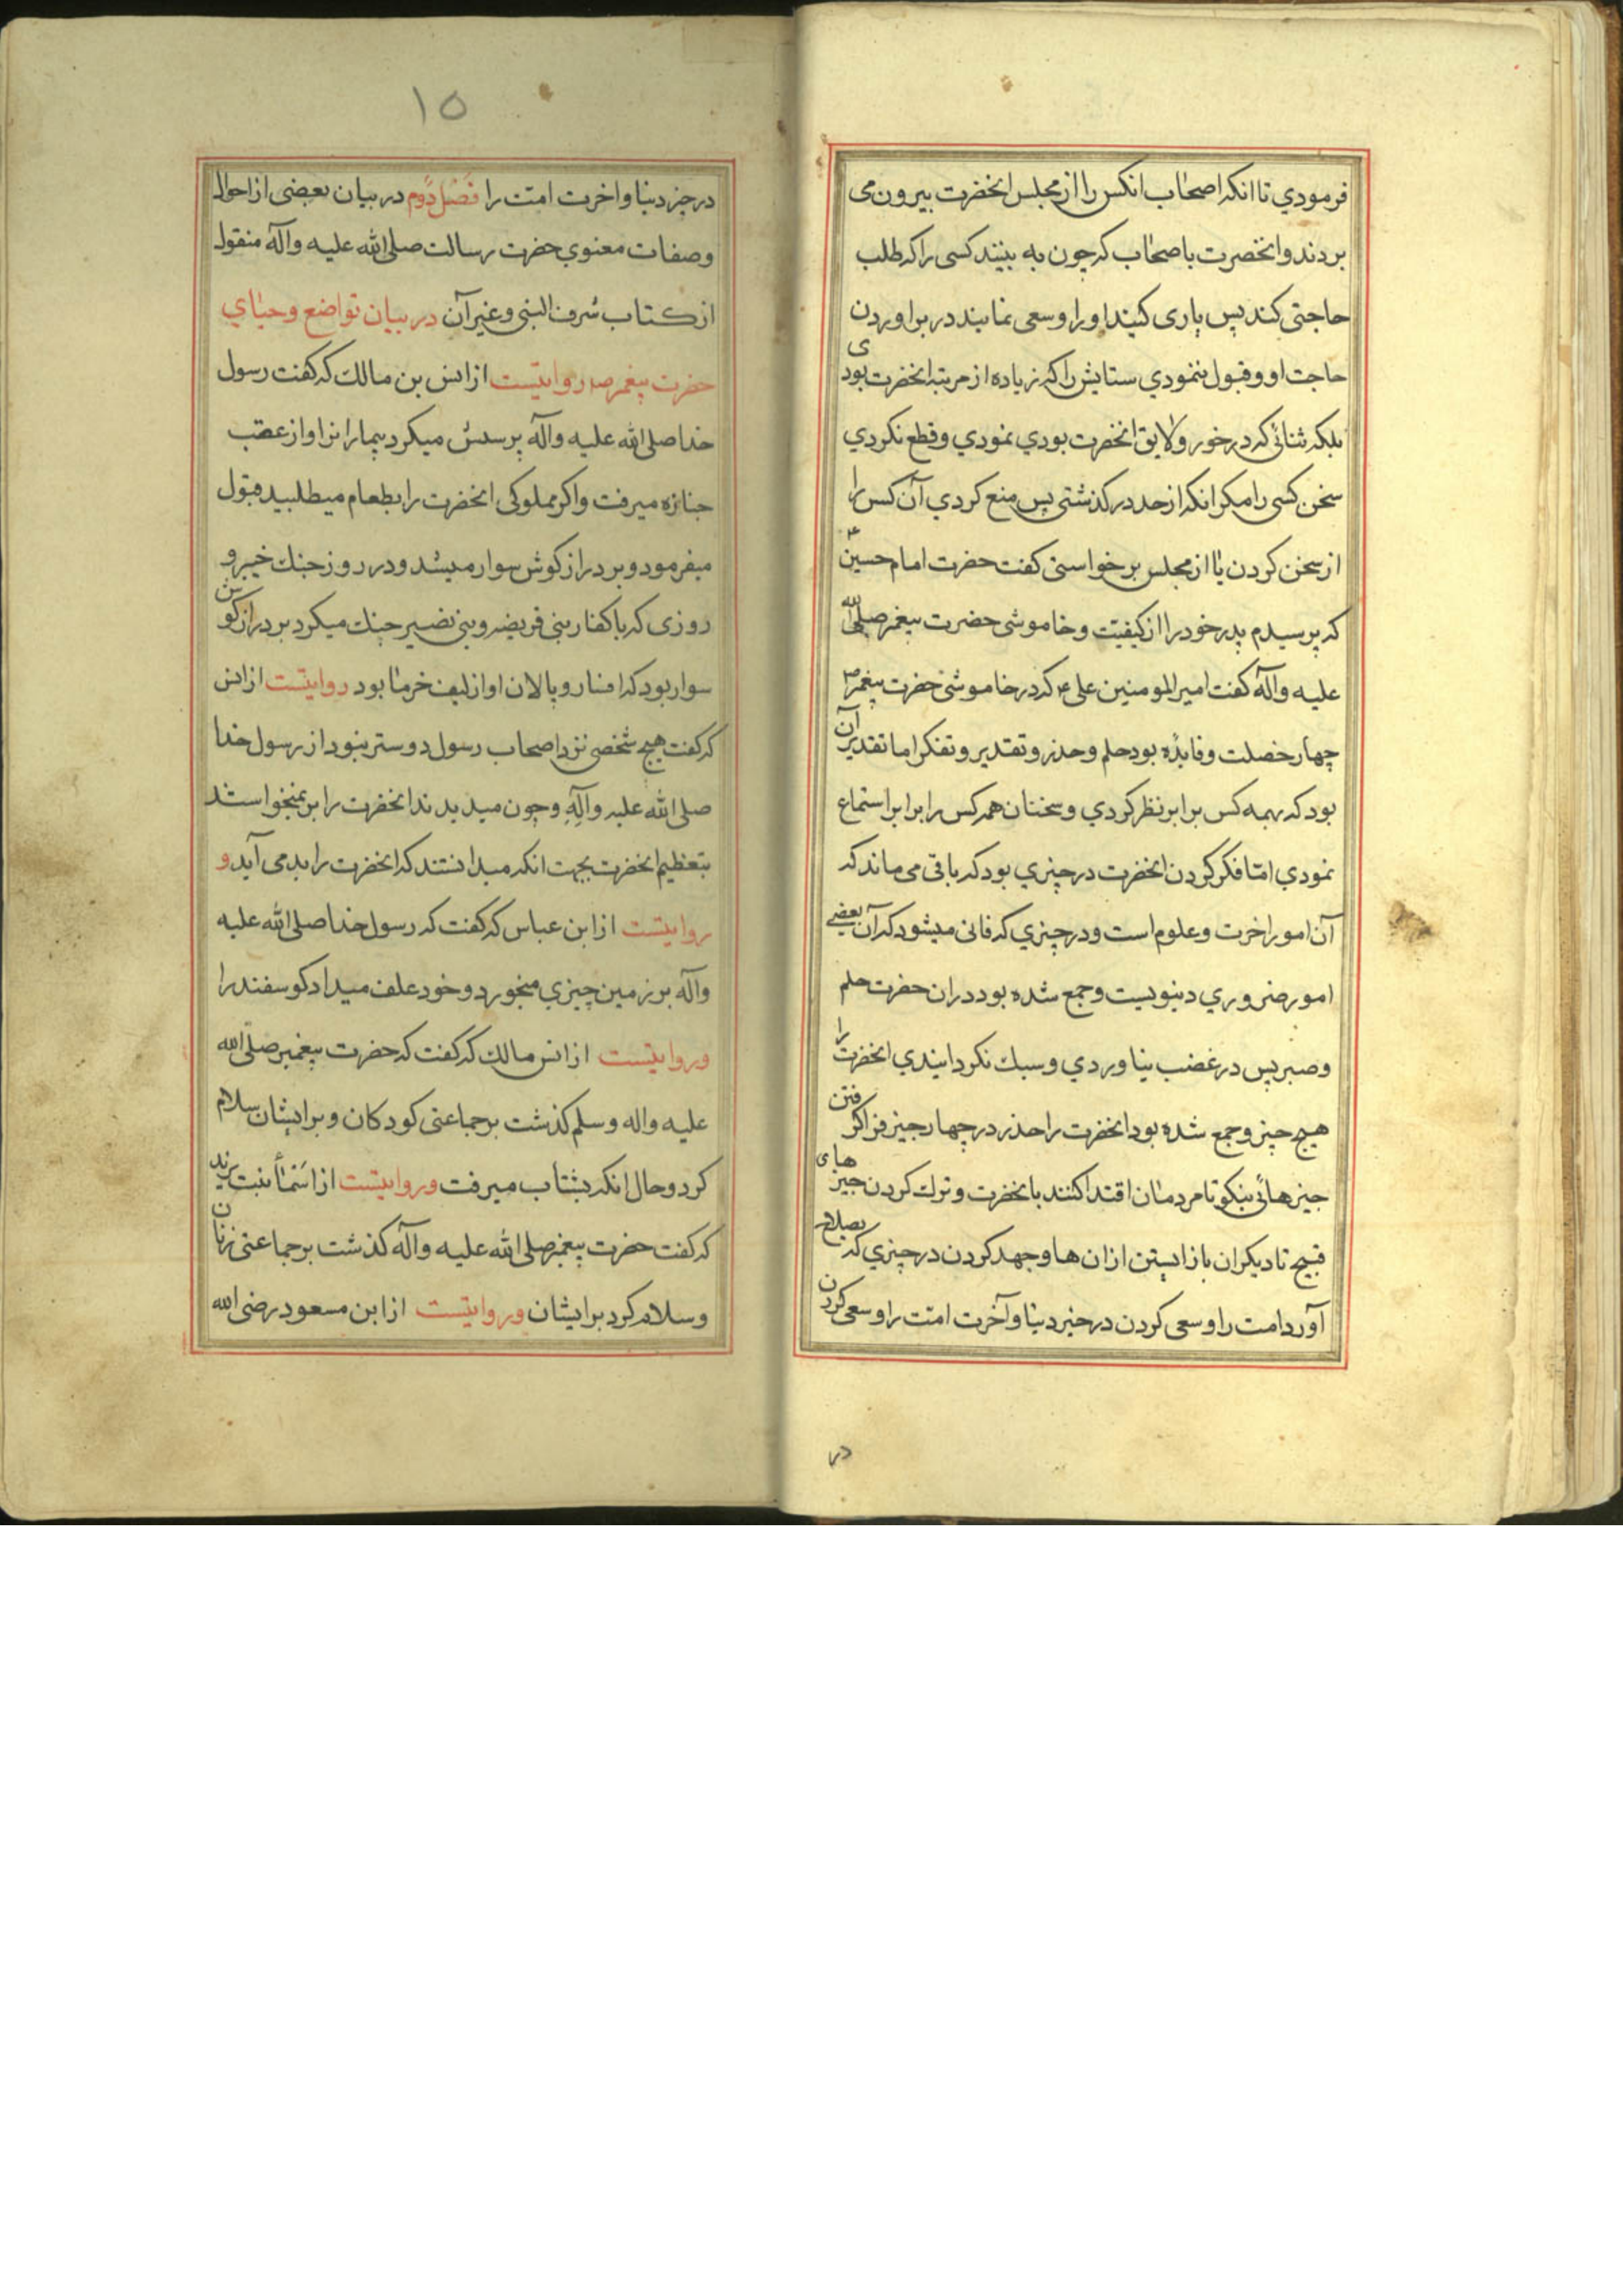 فرمودي تا انکه اصحاب انکس را از مجلس انحضرت بیرون می
بردند و انحضرت با صحاب که چون به بینند کسی را که طلب
حاجتی کند پس یاری کنید او را و سعی نمایند در براوردن
حاجت او و قبول ننمودي ستایش را که زیاده از مرتبه انحضرت بودی
بلکه ثنائی که در خور و لایق انحضرت بودي نمودي و قطع نکردي
سخن کسی را مکر انکه از حد در کذشتی پس منع کردي آن کس را
از سخن کردن یا از مجلس برخواستی کفت حضرت امام حسین ع
که پرسیدم پدر خود را از کیفیت و خاموشی حضرت پیغمبر صلی الله
علیه وآله کفت امیر المومنین علی ع که در خاموشی حضرت پیغمبر ص
چهار خصلت و فایده بود حلم و حذر و تقدیر و تفکر اما تقدیر آن
بود که بهمه کس برابر نظر کردي و سخنان همه کس را برابر استماع
نمودي امّا فکر کردن انحضرت در چیزي بود که باقی می ماند که
آن امور اخرت و علوم است و در چیزي که فانی میشود که آن بعضے
امور ضروري دینویست و جمع شده بود دران حضرت حلم
و صبر پس در غضب نیاوردي و سبك نکردانیدي انحضرت را
هیچ چیز و جمع شده بود انحضرت را حذر در چهار چیز فرا کرفتن
چیزهائی نیکو تا مردمان اقتدا کنند بانحضرت و ترك کردن چیزهای
قبیح تا دیکران باز ایستن ازان ها و جهد کردن در چیزي که بصلاح
آورد امت را و سعی کردن در خیر دنیا و آخرت امّت را و سعی کردن
در
۱۵
در خیر دنیا و اخرت امّت را فصل دوم در بیان بعضی از احوال
وصفات معنوي حضرت رسالت صلی الله علیه وآله منقول
از کتاب شرف النبی و غیر آن در بیان تواضع و حیاي
حضرت پیغمبر ص روایتست از انس بن مالك که کفت رسول
خدا صلی الله علیه وآله پرسش میکرد بیمار انرا و از عقب
جنازه میرفت و اکر مملوکی انحضرت را بطعام میطلبید قبول
میفرمود و بر دراز کوش سوار میشد و در روز جنك خیبر و
روزی که با کفار بنی قریضه و بنی نضیر جنك میکرد بر دراز کوش
سوار بود که افسار و پالان او از لیف خرما بود روایتست از انس
که کفت هیچ شخصی نزد اصحاب رسول دوستر نبود از رسول خدا
صلی الله علیه وآلِهِ و چون میدیدند انحضرت را بر نمیخواستند
بتعظیم انحضرت بجهت انکه میدانستند که انحضرت را بد می آید و
روایتست از ابن عباس که کفت که رسول خدا صلی الله علیه
وآله بر زمین چیزي میخورد و خود علف میداد کوسفند را
و روایتست از انس مالك که کفت که حضرت پیغمبر صلّی الله
علیه واله وسلم کذشت بر جماعتی کودکان و بر ایشان سلام
کرد و حال انکه بشتاب میرفت و روایتست از اسماء بنت یزید
که کفت حضرت پیغمبر صلی الله علیه وآله کذشت بر جماعتی زنان
و سلام کرد بر ایشان و روایتست از ابن مسعود رضی الله